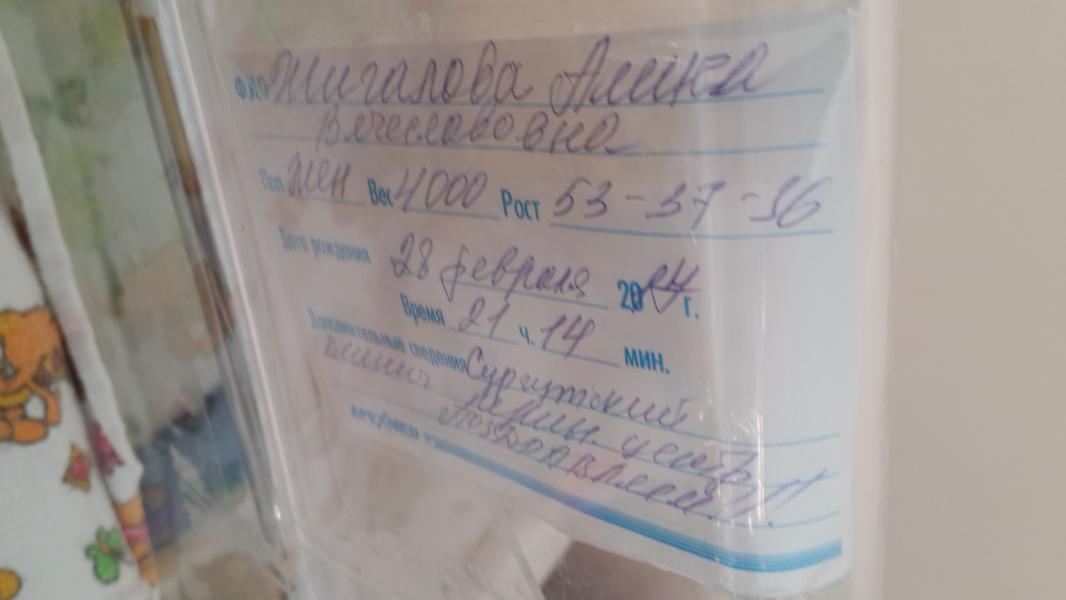 Ф.И.О. Жигалова Алина
Вячеславовна
Пол жен Вес 4000 Рост 53-37-36
Дата рождения 28 февраля 2024 г.
Время 21 ч. 14 мин.
Дополнительные сведения Сургутский
клинич перин. центр
Поздравляем!!!
APEXMED